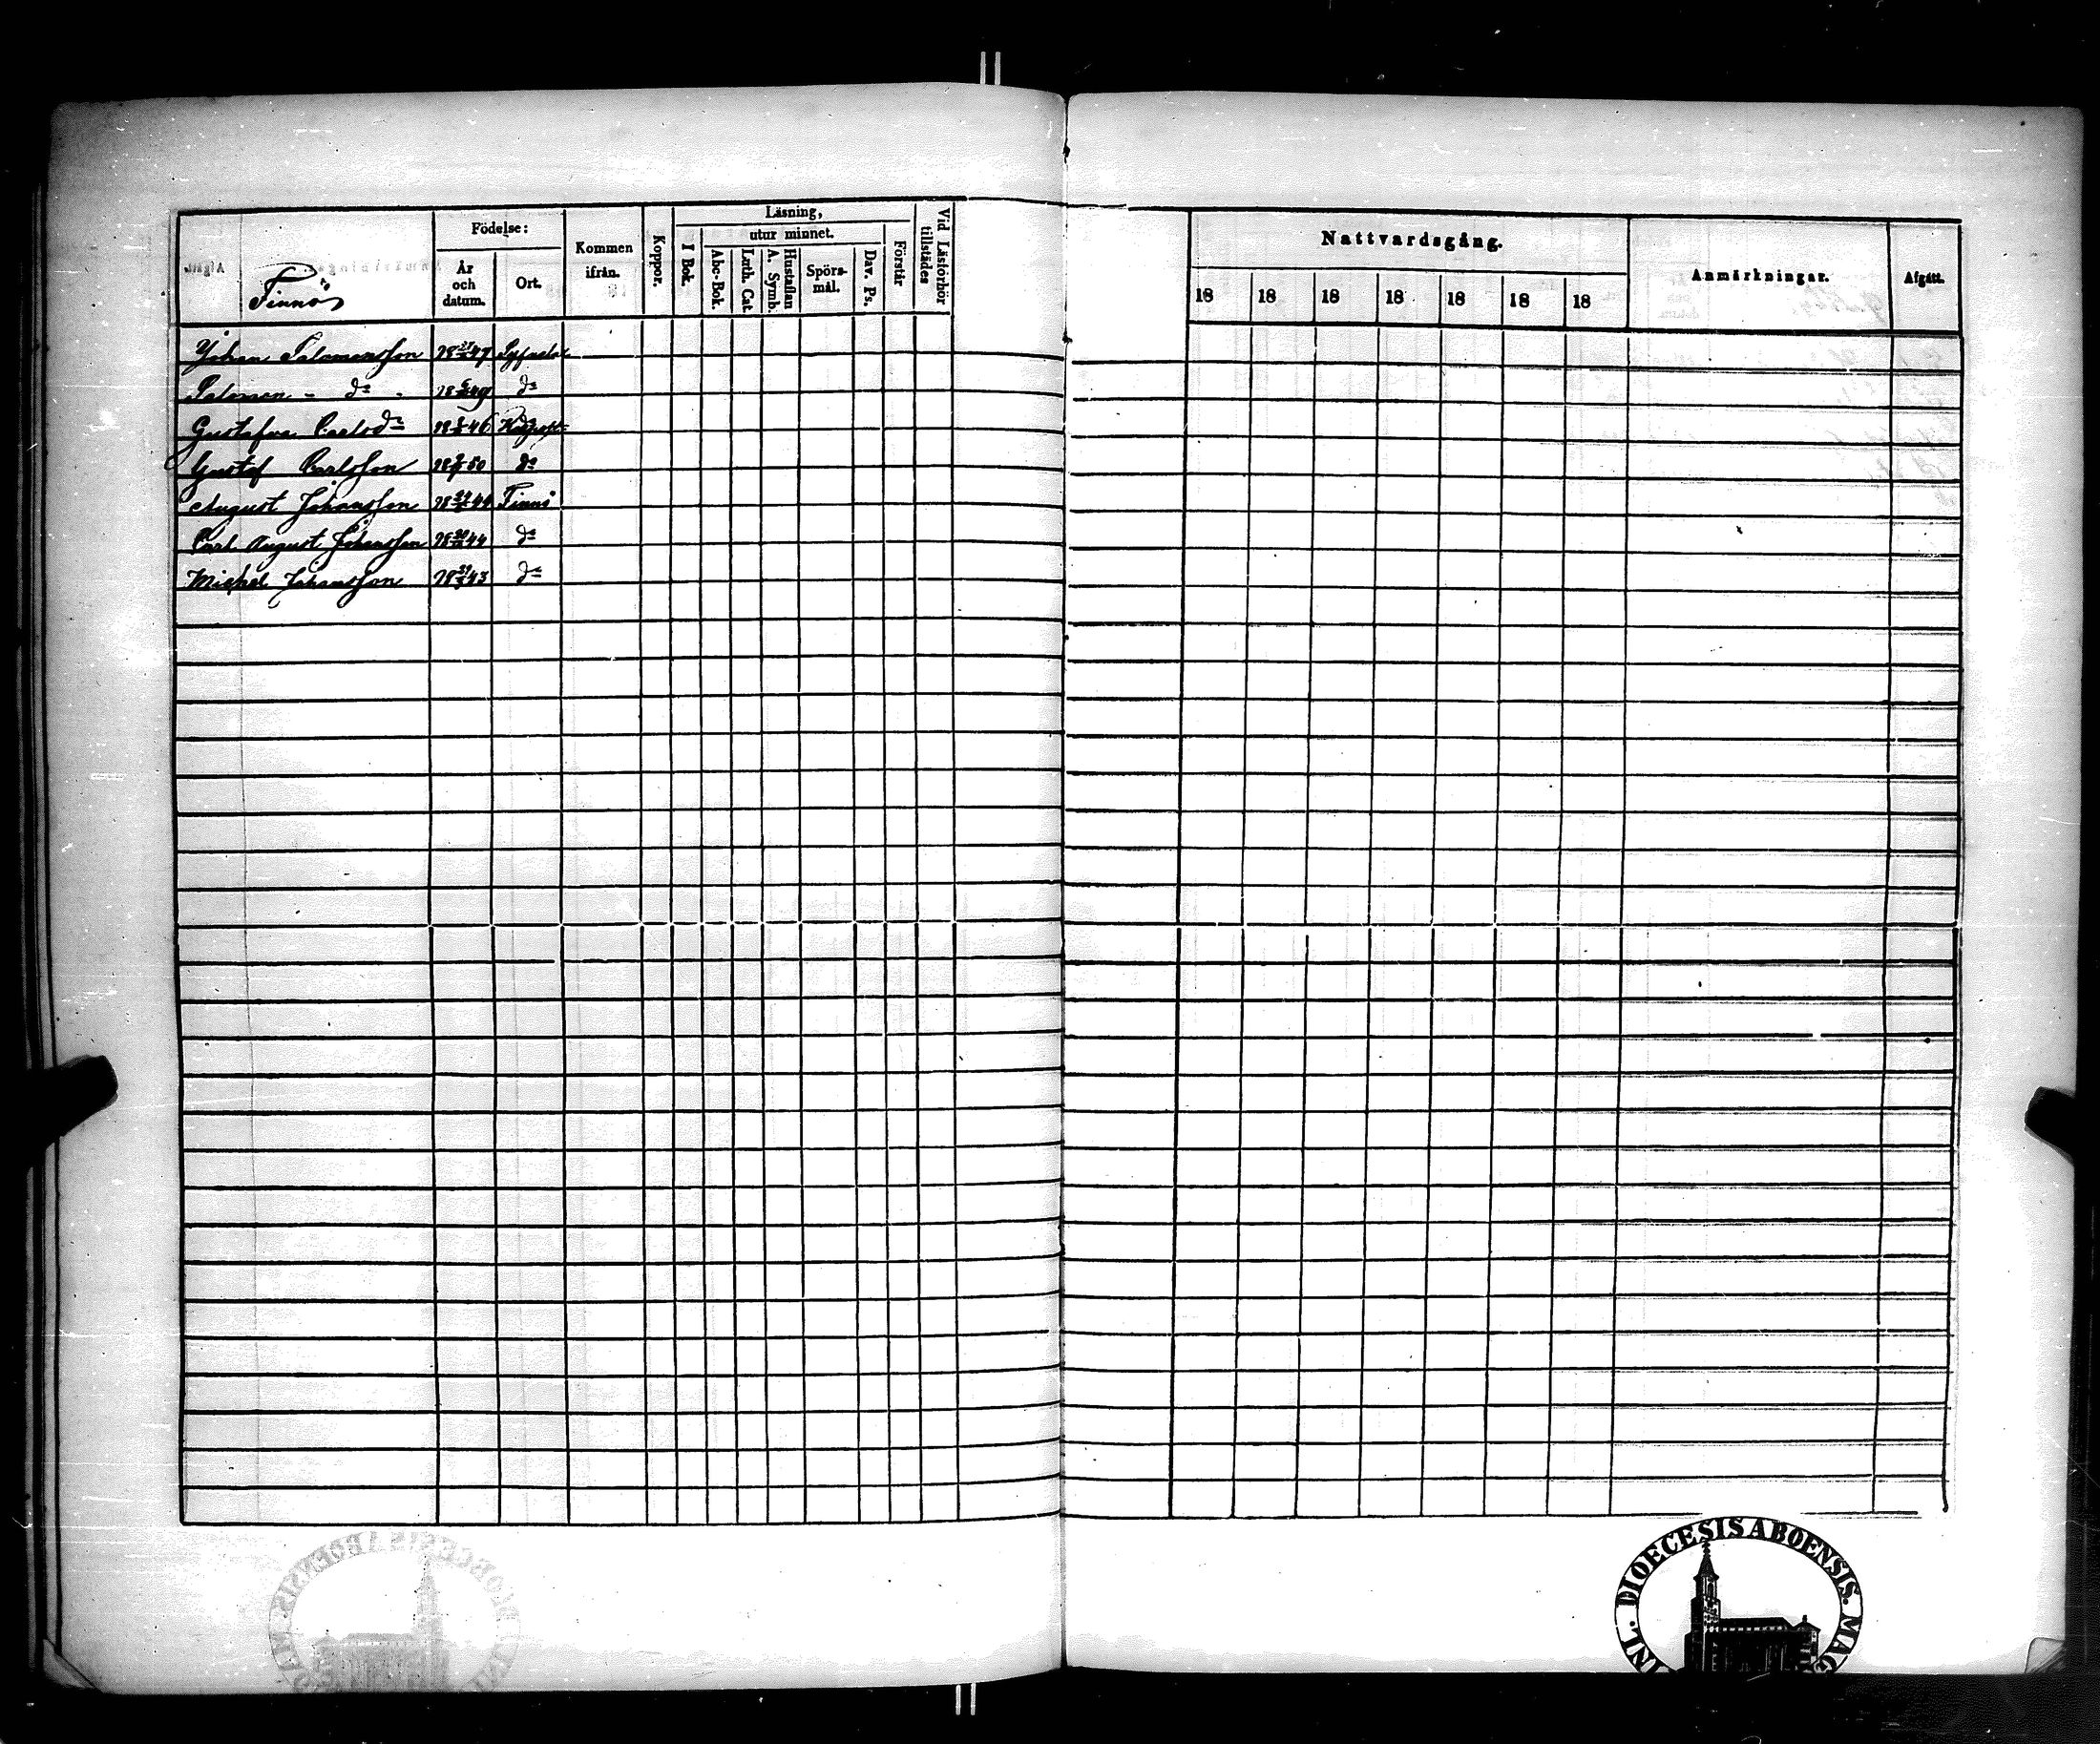 Finnö
Afgått.
Födelse:
År
och
datum.
Ort.
Kommen
ifrån.
Koppor.
Läsning,
I Bok.
utur minnet.
Abc-Bok.
Luth. Cat.
Hustaflan
A. Symb.
Spörs-
mål.
Dav. Ps.
Förstår
Vid Läsförhör
tillstädes
Johan Salomonsson 18 47
Salomon - do - 18 49 do
Gustafva Carlsdr 18 46
Gustaf Carlsson 18 50 do
August Johansson 18 44 Finnö
Carl August Johansson 18 44 do
Michel Johansson 18 43 do
Nattvardsgång.
18 18 18 18 18 18 18
Anmärkningar.
Afgått.
DIOECESIS ABOENSIS. MAG